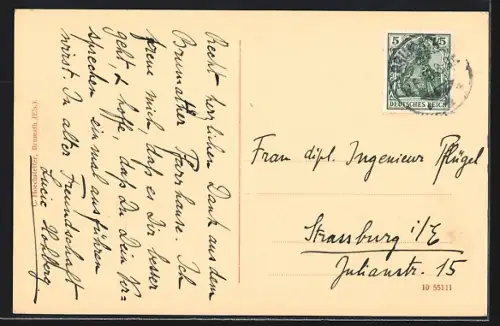 Recht herzlichen Dank aus dem
Brumather Pfarrhause. Ich
freue mich, daß es Dir besser
geht, & hoffe, daß Du Dein Ver-
sprechen einmal ausführen
wirst. In alter Freundschaft
Lucie
5 5
DEUTSCHES REICH
Frau dipl. Ingenieur Pflügel
Strassburg i/E
Julianstr. 15
19 55111
Brumath (Els.)